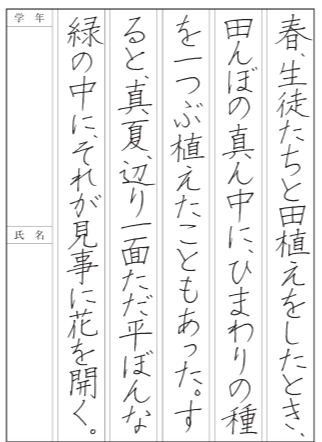 春、生徒たちと田植えをしたとき、
田んぼの真ん中に、ひまわりの種
を一つぶ植えたこともあった。す
ると、真夏、辺り一面ただ平ぼんな
緑の中に、それが見事に花を開く。
学年
氏名